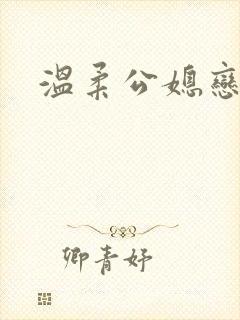 溫柔公媳戀
卿青妤